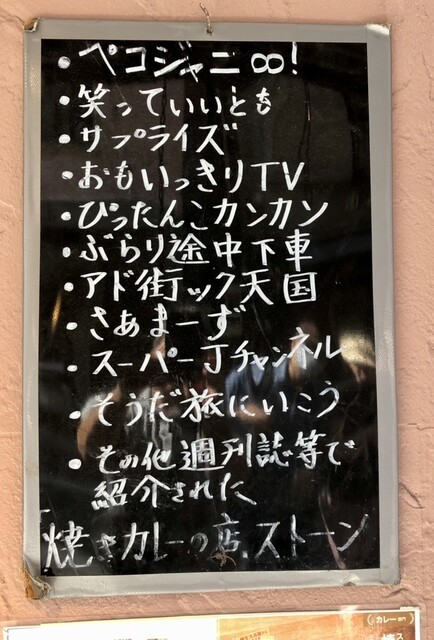 ・ペコジャニ∞!
・笑っていいとも
・サプライズ
・おもいっきりTV
・ぴったんこカンカン
・ぶらり途中下車
・アド街ック天国
・さぁまーず
・スーパーJチャンネル
・そうだ旅にいこう
・その他週刊誌等で
紹介された
焼きカレーの店、ストーン